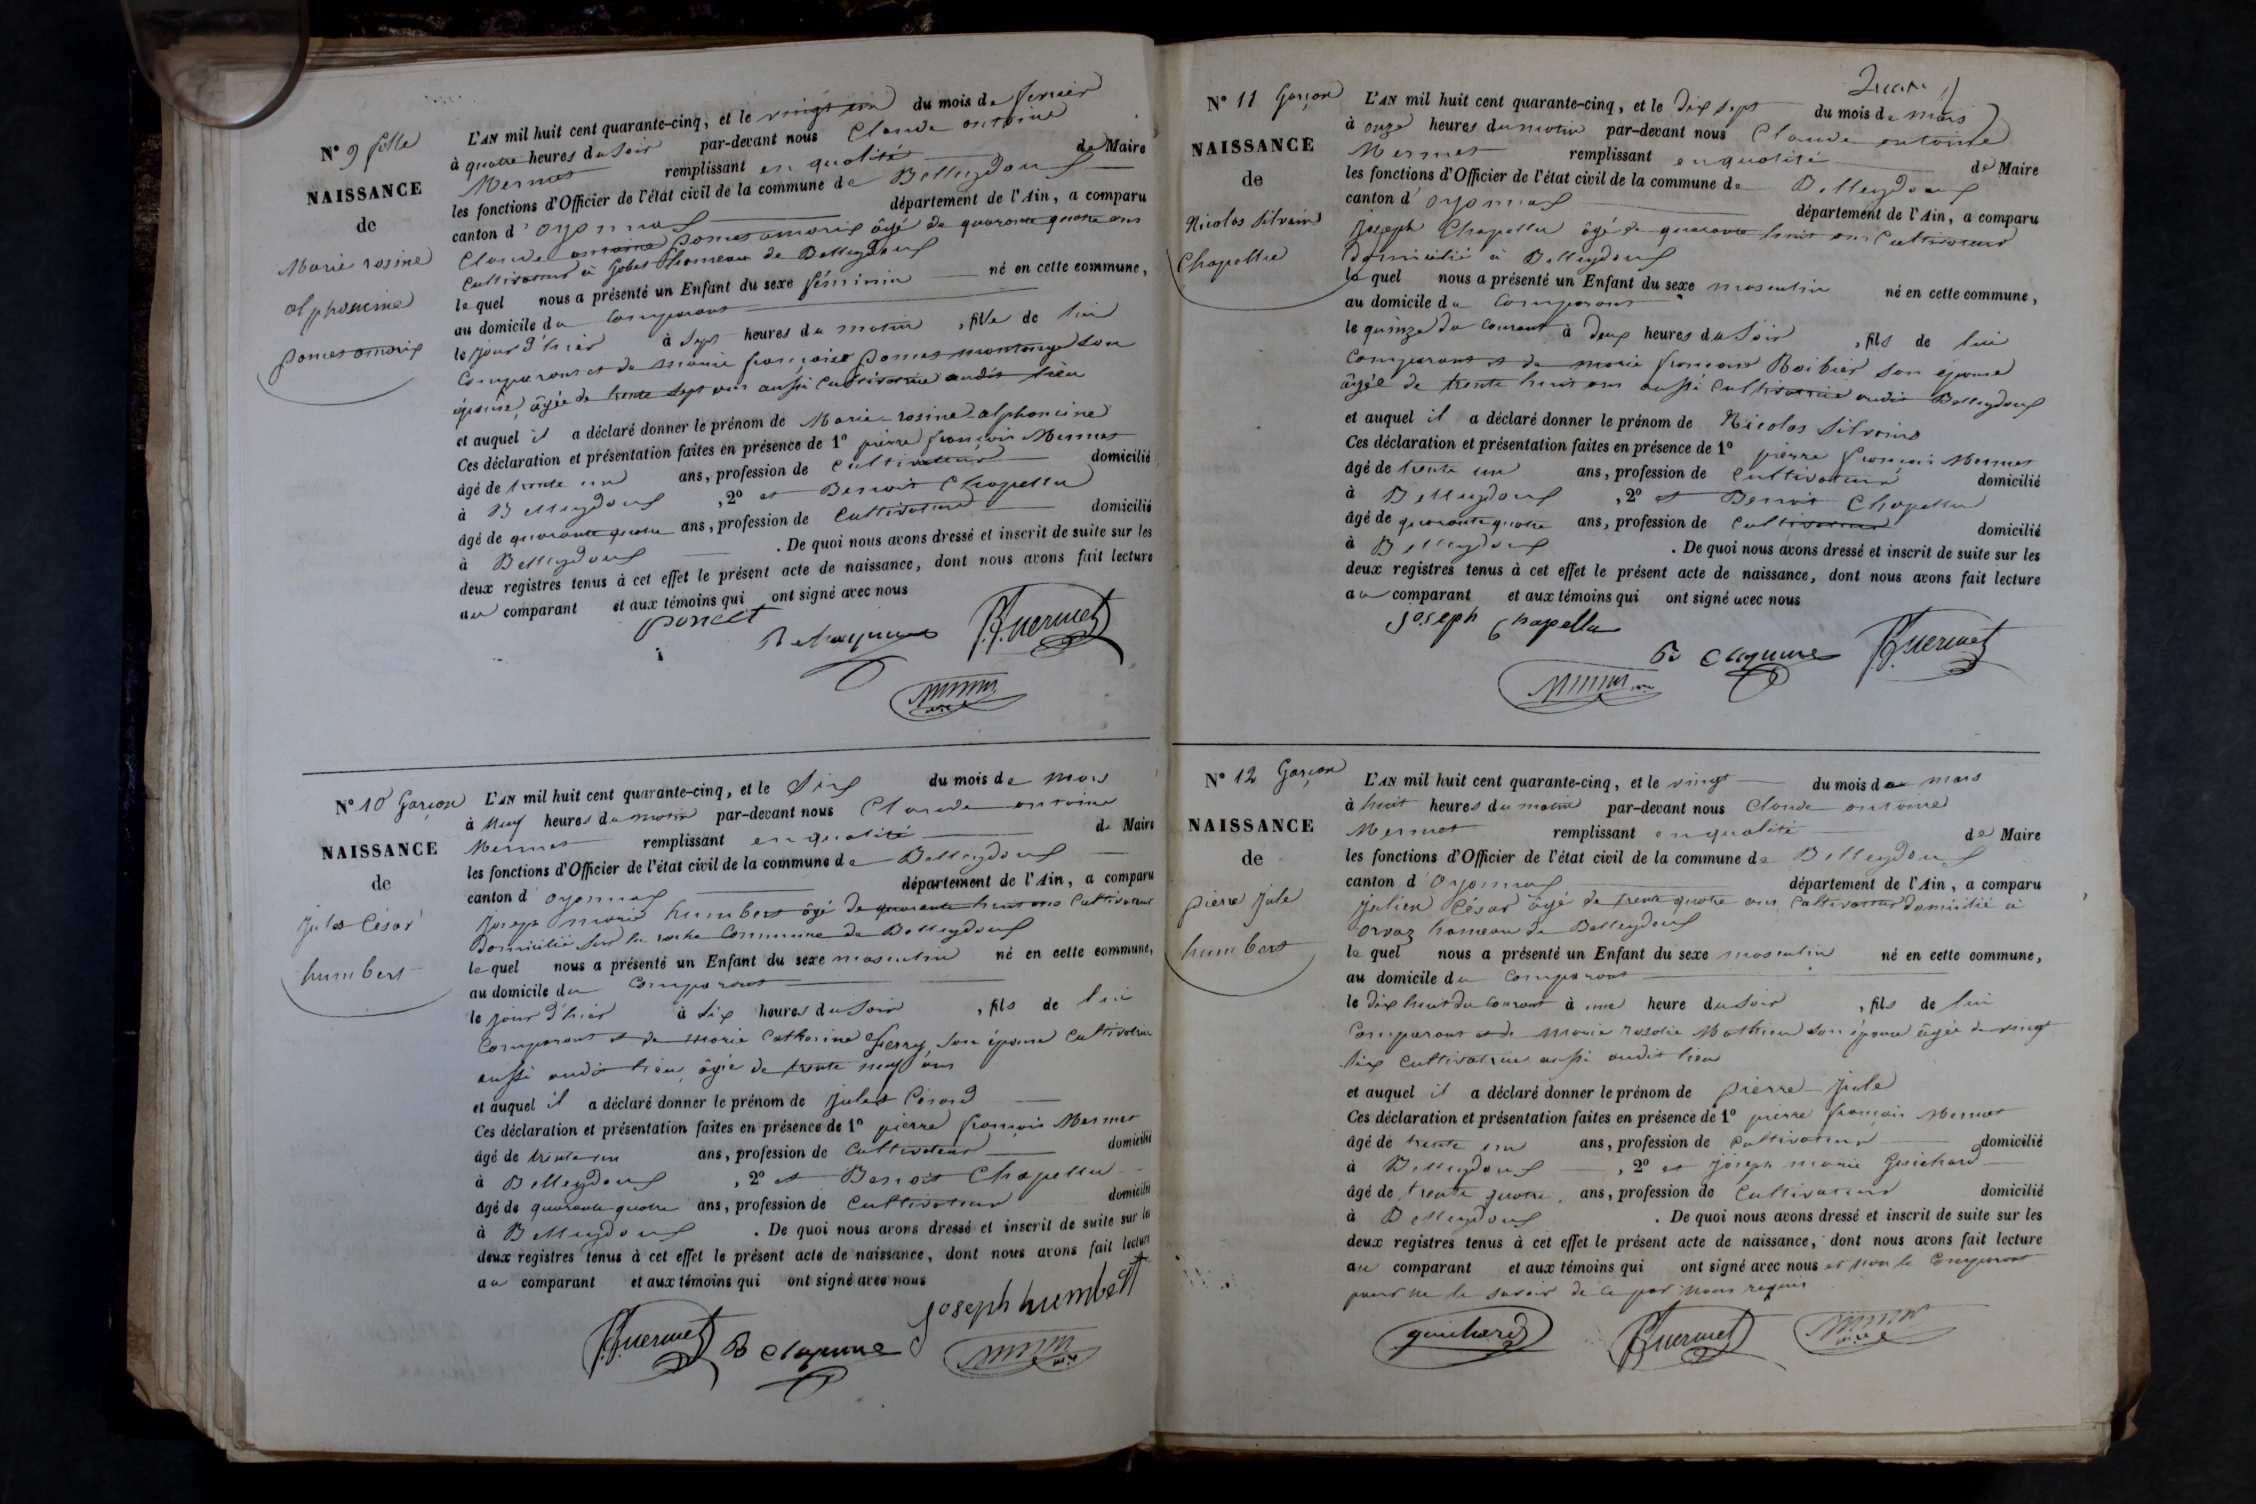 N° 9 fille
NAISSANCE
de
Marie rosine
alphoncine
poncet amorix
L'AN mil huit cent quarante-cinq, et le vingt un du mois de fevrier
à quatre heures du Soir par-devant nous Claude antoine
Mermet remplissant en qualité de Maire
les fonctions d'Officier de l'état civil de la commune de Belleydoux
canton d'oyonnax département de l'Ain, a comparu
Claude poncet amorix âgé de quarante quatre ans
Cultivateur à Gobet hameau de Belleydoux
le quel nous a présenté un Enfant du sexe féminin né en cette commune,
au domicile du Comparant
le jour d'hier à Sept heures du matin, fille de lui
Comparant et de marie françoise poncet montange son
épouse, âgée de trente Sept ans aussi Cultivatrice audit lieu
et auquel il a déclaré donner le prénom de Marie-rosine-alphoncine
Ces déclaration et présentation faites en présence de 1° pierre françois Mermet
âgé de trente un ans, profession de Cultivateur domicilié
à Belleydoux, 2° et Benoit Chapellu
âgé de quarante quatre ans, profession de Cultivateur domicilié
à Belleydoux. De quoi nous avons dressé et inscrit de suite sur les
deux registres tenus à cet effet le présent acte de naissance, dont nous avons fait lecture
au comparant et aux témoins qui ont signé avec nous
poncet
N° 10 Garçon
NAISSANCE
de
Jules César
humbert
L'AN mil huit cent quarante-cinq, et le Six du mois de mars
à Neuf heures du matin par-devant nous Claude antoine
Mermet remplissant en qualité de Maire
les fonctions d'Officier de l'état civil de la commune de Belleydoux
canton d'oyonnax département de l'Ain, a comparu
Joseph marie humbert âgé de quarante huit ans Cultivateur
Domicilié Sur la roche Commune de Belleydoux
le quel nous a présenté un Enfant du sexe masculin né en cette commune,
au domicile du Comparant
le jour d'hier à Six heures du Soir, fils de lui
Comparant et de marie Catherine ferry, son épouse Cultivatrice
aussi audit lieu, âgée de trente neuf ans
et auquel il a déclaré donner le prénom de Jules César
Ces déclaration et présentation faites en présence de 1° pierre françois Mermet
âgé de trente un ans, profession de Cultivateur domicilié
à Belleydoux, 2° et Benoit Chapellu
âgé de quarante quatre ans, profession de Cultivateur domicilié
à Belleydoux. De quoi nous avons dressé et inscrit de suite sur les
deux registres tenus à cet effet le présent acte de naissance, dont nous avons fait lecture
au comparant et aux témoins qui ont signé avec nous
Joseph humbert
N° 11 Garçon
NAISSANCE
de
Nicolas Silvain
Chapellu
L'AN mil huit cent quarante-cinq, et le dix sept du mois de mars
à onze heures du matin par-devant nous Claude antoine
Mermet remplissant en qualité de Maire
les fonctions d'Officier de l'état civil de la commune de Belleydoux
canton d'oyonnax département de l'Ain, a comparu
joseph Chapellu âgé de quarante huit ans Cultivateur
domicilié à Belleydoux
le quel nous a présenté un Enfant du sexe masculin né en cette commune,
au domicile du Comparant
le quinze du courant à deux heures du Soir, fils de lui
Comparant et de marie françoise Boibier son épouse
âgée de trente huit ans aussi Cultivatrice audit Belleydoux
et auquel il a déclaré donner le prénom de Nicolas Silvains
Ces déclaration et présentation faites en présence de 1° pierre françois Mermet
âgé de trente un ans, profession de Cultivateur domicilié
à Belleydoux, 2° et Benoit Chapellu
âgé de quarante quatre ans, profession de Cultivateur domicilié
à Belleydoux. De quoi nous avons dressé et inscrit de suite sur les
deux registres tenus à cet effet le présent acte de naissance, dont nous avons fait lecture
au comparant et aux témoins qui ont signé avec nous
joseph Chapellu
N° 12 Garçon
NAISSANCE
de
pierre Jule
humbert
L'AN mil huit cent quarante-cinq, et le vingt du mois de mars
à huit heures du matin par-devant nous Claude antoine
Mermet remplissant en qualité de Maire
les fonctions d'Officier de l'état civil de la commune de Belleydoux
canton d'Oyonnax département de l'Ain, a comparu
Julien César âgé de trente quatre ans Cultivateur domicilié à
orvaz hameau de Belleydoux
le quel nous a présenté un Enfant du sexe masculin né en cette commune,
au domicile du Comparant
le dix huit du courant à une heure du Soir, fils de lui
Comparant et de marie rosalie Mathieu son épouse âgée de vingt
Six Cultivatrice aussi audit lieu
et auquel il a déclaré donner le prénom de pierre Jule
Ces déclaration et présentation faites en présence de 1° pierre françois Mermet
âgé de trente un ans, profession de Cultivateur domicilié
à Belleydoux, 2° et joseph marie Guichard
âgé de trente quatre ans, profession de Cultivateur domicilié
à Belleydoux. De quoi nous avons dressé et inscrit de suite sur les
deux registres tenus à cet effet le présent acte de naissance, dont nous avons fait lecture
au comparant et aux témoins qui ont signé avec nous et non le Comparant
pour ne le savoir de ce par nous requis
guichard